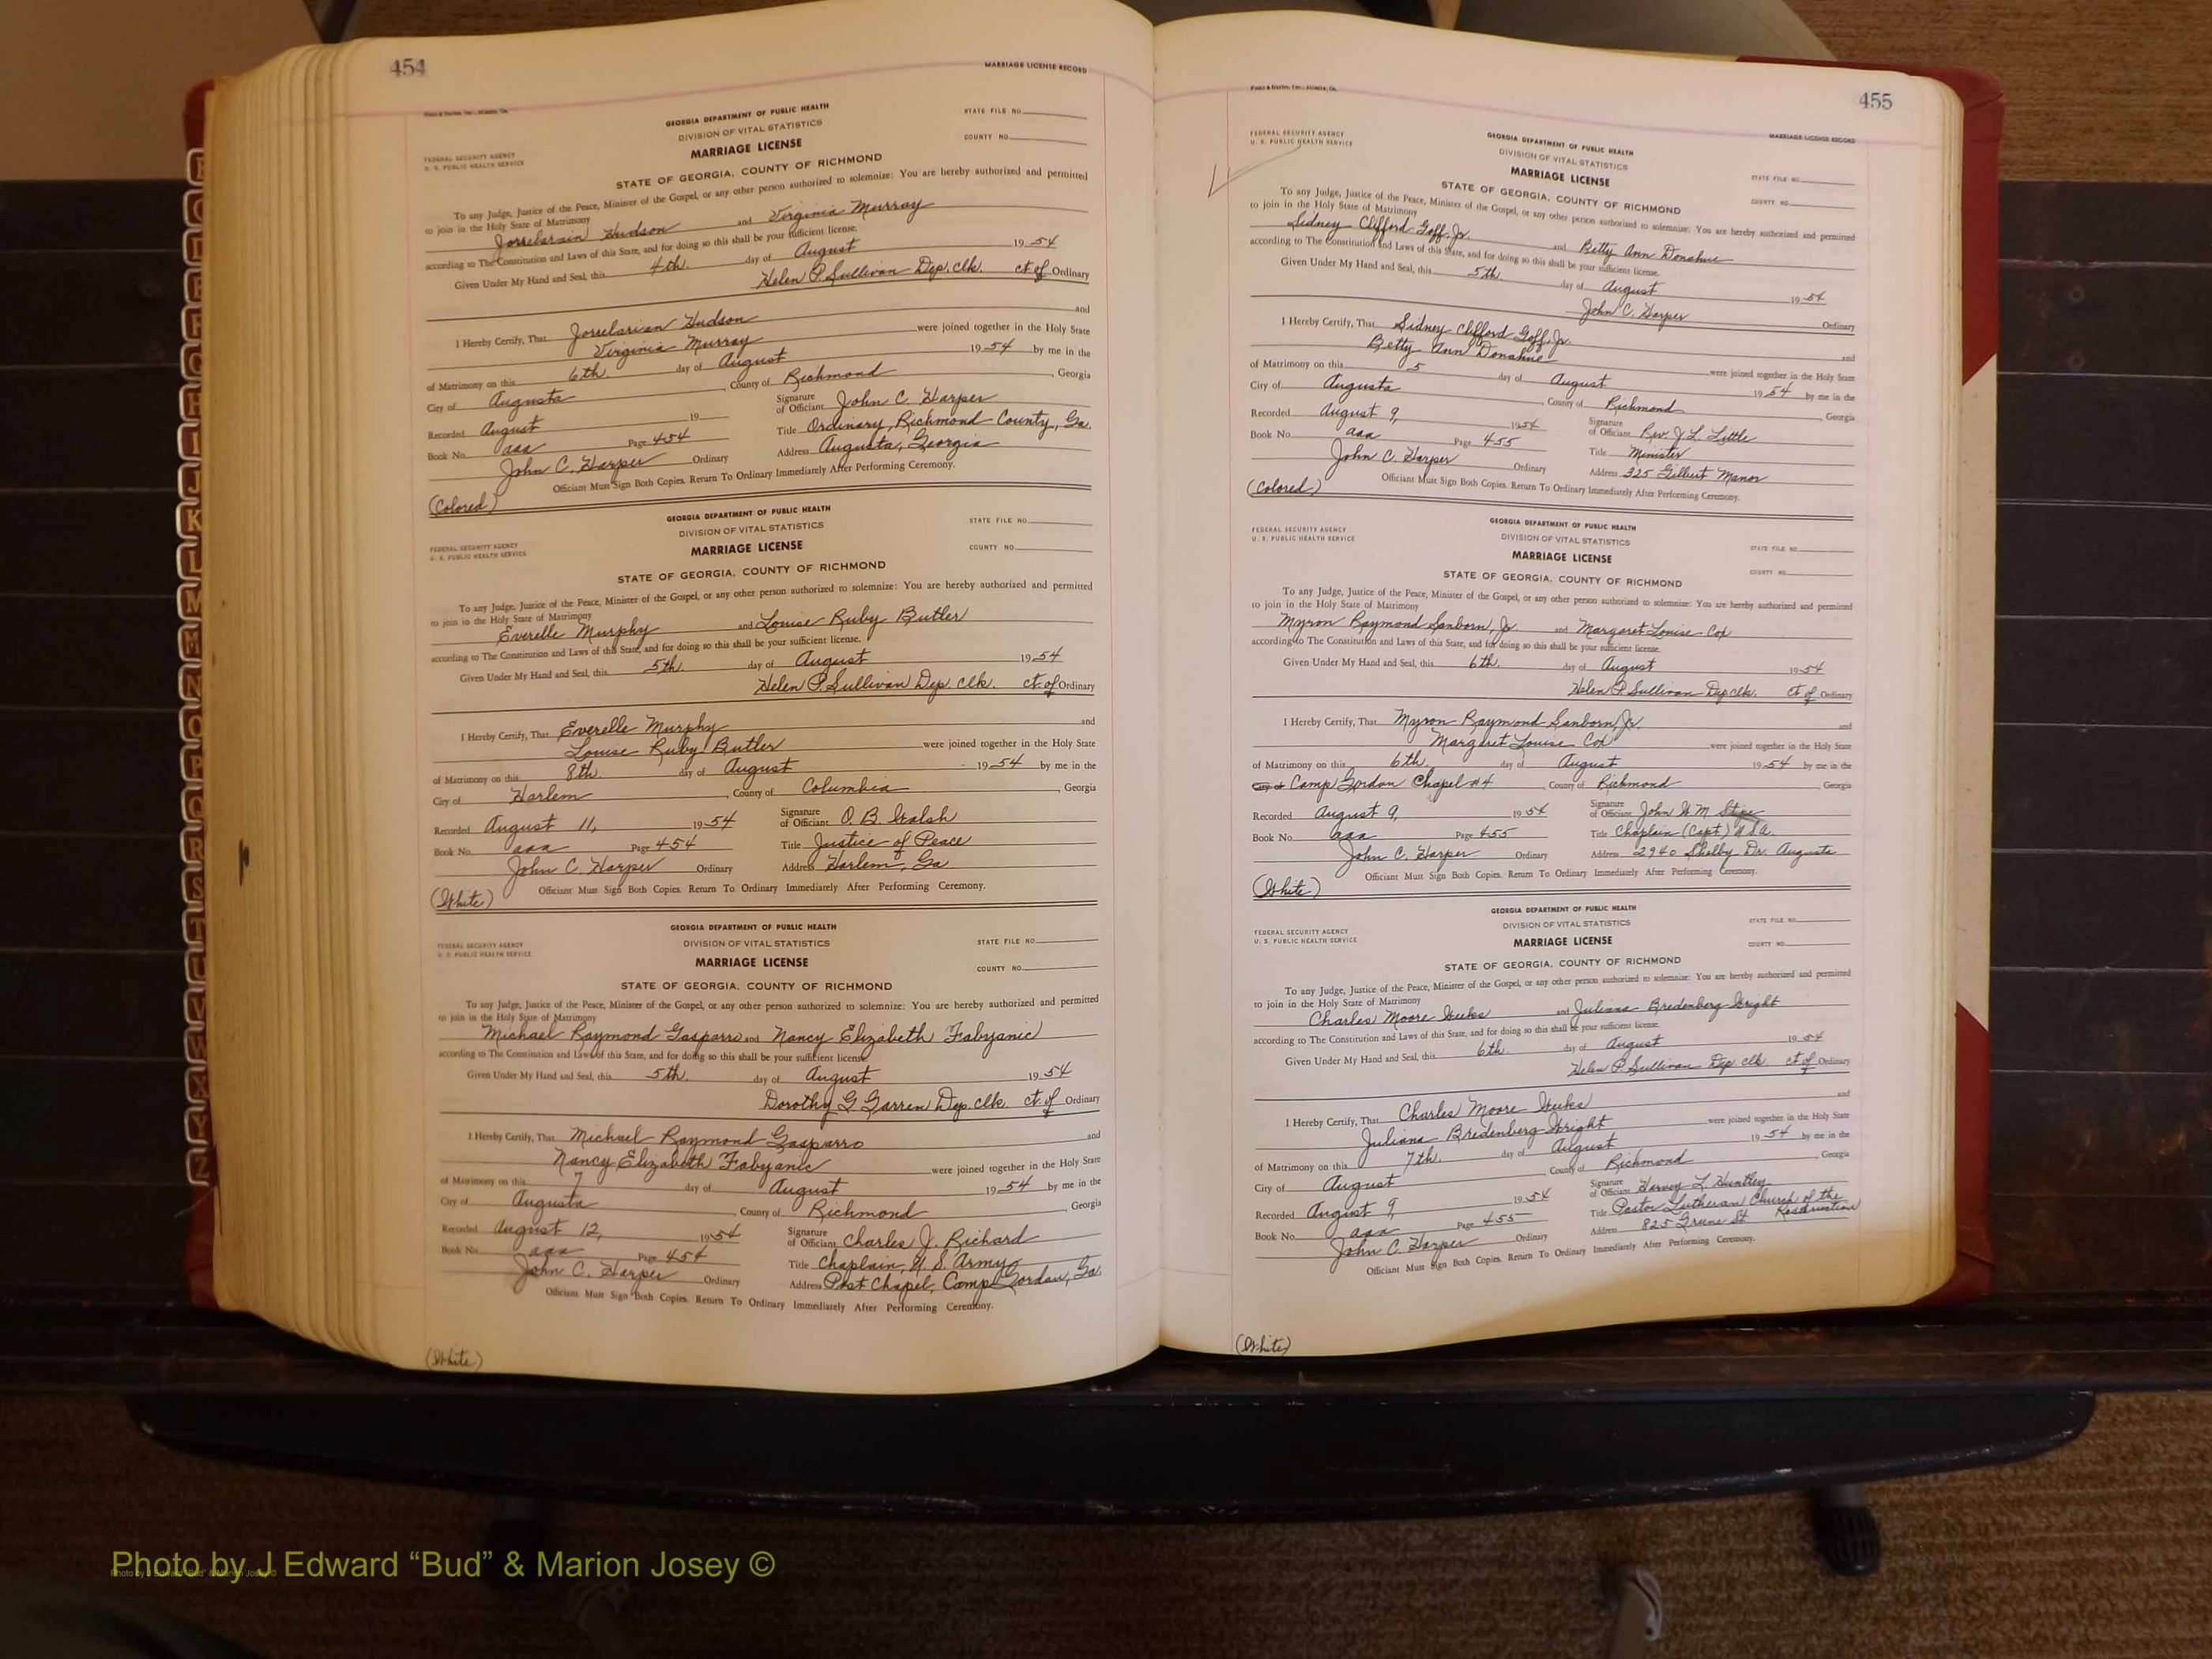 454
MARRIAGE LICENSE RECORD
GEORGIA DEPARTMENT OF PUBLIC HEALTH
STATE FILE NO.
DIVISION OF VITAL STATISTICS
COUNTY NO.
FEDERAL SECURITY AGENCY
U. S. PUBLIC HEALTH SERVICE
MARRIAGE LICENSE
STATE OF GEORGIA, COUNTY OF RICHMOND
To any Judge, Justice of the Peace, Minister of the Gospel, or any other person authorized to solemnize: You are hereby authorized and permitted
to join in the Holy State of Matrimony
Hudson and Virginia Murray
according to The Constitution and Laws of this State, and for doing so this shall be your sufficient license.
Given Under My Hand and Seal, this 4th. day of August 19 54
Helen P. Sullivan Dep. clk. ct. of Ordinary
I Hereby Certify, That Josselarian Hudson and
Virginia Murray were joined together in the Holy State
of Matrimony on this 6th. day of August 19 54 by me in the
City of Augusta, County of Richmond, Georgia
Recorded August 19
Signature of Officiant John C. Harper
Book No. aaa Page 454
Title Ordinary, Richmond County, Ga.
John C. Harper Ordinary
Address Augusta, Georgia
Officiant Must Sign Both Copies. Return To Ordinary Immediately After Performing Ceremony.
(Colored)
GEORGIA DEPARTMENT OF PUBLIC HEALTH
STATE FILE NO.
DIVISION OF VITAL STATISTICS
COUNTY NO.
FEDERAL SECURITY AGENCY
U. S. PUBLIC HEALTH SERVICE
MARRIAGE LICENSE
STATE OF GEORGIA, COUNTY OF RICHMOND
To any Judge, Justice of the Peace, Minister of the Gospel, or any other person authorized to solemnize: You are hereby authorized and permitted
to join in the Holy State of Matrimony
Everelle Murphy and Louise Ruby Butler
according to The Constitution and Laws of this State, and for doing so this shall be your sufficient license.
Given Under My Hand and Seal, this 5th. day of August 19 54
Helen P. Sullivan Dep. clk. ct. of Ordinary
I Hereby Certify, That Everelle Murphy and
Louise Ruby Butler were joined together in the Holy State
of Matrimony on this 8th. day of August 19 54 by me in the
City of Harlem, County of Columbia, Georgia
Recorded August 11, 19 54
Signature of Officiant O. B. Walsh
Book No. aaa Page 454
Title Justice of Peace
John C. Harper Ordinary
Address Harlem, Ga
Officiant Must Sign Both Copies. Return To Ordinary Immediately After Performing Ceremony.
(White)
GEORGIA DEPARTMENT OF PUBLIC HEALTH
STATE FILE NO.
DIVISION OF VITAL STATISTICS
COUNTY NO.
FEDERAL SECURITY AGENCY
U. S. PUBLIC HEALTH SERVICE
MARRIAGE LICENSE
STATE OF GEORGIA, COUNTY OF RICHMOND
To any Judge, Justice of the Peace, Minister of the Gospel, or any other person authorized to solemnize: You are hereby authorized and permitted
to join in the Holy State of Matrimony
Michael Raymond Gasparro and Nancy Elizabeth Fabyanic
according to The Constitution and Laws of this State, and for doing so this shall be your sufficient license.
Given Under My Hand and Seal, this 5th. day of August 19 54
Dorothy G Garren Dep. clk. ct. of Ordinary
I Hereby Certify, That Michael Raymond Gasparro and
Nancy Elizabeth Fabyanic were joined together in the Holy State
of Matrimony on this 7 day of August 19 54 by me in the
City of Augusta, County of Richmond, Georgia
Recorded August 12, 19 54
Signature of Officiant Charles J. Richard
Book No. aaa Page 454
Title Chaplain, U. S. Army
John C. Harper Ordinary
Address Post Chapel, Camp Gordon, Ga.
Officiant Must Sign Both Copies. Return To Ordinary Immediately After Performing Ceremony.
(White)
455
MARRIAGE LICENSE RECORD
FEDERAL SECURITY AGENCY
U. S. PUBLIC HEALTH SERVICE
GEORGIA DEPARTMENT OF PUBLIC HEALTH
DIVISION OF VITAL STATISTICS
MARRIAGE LICENSE
STATE FILE NO.
STATE OF GEORGIA, COUNTY OF RICHMOND
COUNTY NO.
To any Judge, Justice of the Peace, Minister of the Gospel, or any other person authorized to solemnize: You are hereby authorized and permitted
to join in the Holy State of Matrimony
Sidney Clifford Goff, Jr. and Betty Ann Donahue
according to The Constitution and Laws of this State, and for doing so this shall be your sufficient license.
Given Under My Hand and Seal, this 5th. day of August 19 54
John C. Harper Ordinary
I Hereby Certify, That Sidney Clifford Goff, Jr. and
Betty Ann Donahue were joined together in the Holy State
of Matrimony on this 5 day of August 19 54 by me in the
City of Augusta, County of Richmond, Georgia
Recorded August 9, 19 54
Signature of Officiant Rev. J. L. Little
Book No. aaa Page 455
Title Minister
John C. Harper Ordinary
Address 325 Gilbert Manor
Officiant Must Sign Both Copies. Return To Ordinary Immediately After Performing Ceremony.
(Colored)
GEORGIA DEPARTMENT OF PUBLIC HEALTH
FEDERAL SECURITY AGENCY
U. S. PUBLIC HEALTH SERVICE
DIVISION OF VITAL STATISTICS
STATE FILE NO.
MARRIAGE LICENSE
COUNTY NO.
STATE OF GEORGIA, COUNTY OF RICHMOND
To any Judge, Justice of the Peace, Minister of the Gospel, or any other person authorized to solemnize: You are hereby authorized and permitted
to join in the Holy State of Matrimony
Myron Raymond Sanborn, Jr. and Margaret Louise Cox
according to The Constitution and Laws of this State, and for doing so this shall be your sufficient license.
Given Under My Hand and Seal, this 6th. day of August 19 54
Helen P. Sullivan Dep clk. ct. of Ordinary
I Hereby Certify, That Myron Raymond Sanborn, Jr. and
Margaret Louise Cox were joined together in the Holy State
of Matrimony on this 6th. day of August 19 54 by me in the
City of Camp Gordon Chapel #4 County of Richmond Georgia
Recorded August 9, 19 54
Signature of Officiant John W. M.
Book No. aaa Page 455
Title Chaplain (Capt.) U.S.A.
John C. Harper Ordinary
Address 2940 Shelby Dr. Augusta
Officiant Must Sign Both Copies. Return To Ordinary Immediately After Performing Ceremony.
(White)
GEORGIA DEPARTMENT OF PUBLIC HEALTH
STATE FILE NO.
DIVISION OF VITAL STATISTICS
FEDERAL SECURITY AGENCY
U. S. PUBLIC HEALTH SERVICE
MARRIAGE LICENSE
COUNTY NO.
STATE OF GEORGIA, COUNTY OF RICHMOND
To any Judge, Justice of the Peace, Minister of the Gospel, or any other person authorized to solemnize: You are hereby authorized and permitted
to join in the Holy State of Matrimony
Charles Moore Weeks and Juliana Bredenberg Wright
according to The Constitution and Laws of this State, and for doing so this shall be your sufficient license.
Given Under My Hand and Seal, this 6th. day of August 19 54
Helen P. Sullivan Dep clk. ct. of Ordinary
I Hereby Certify, That Charles Moore Weeks and
Juliana Bredenberg Wright were joined together in the Holy State
of Matrimony on this 7th. day of August 19 54 by me in the
City of August County of Richmond, Georgia
Recorded August 9, 19 54
Signature of Officiant Harvey L. Huntley
Book No. aaa Page 455
Title Pastor Lutheran Church of the Resurrection
John C. Harper Ordinary
Address 825 Greene St
Officiant Must Sign Both Copies. Return To Ordinary Immediately After Performing Ceremony.
(White)
Photo by J Edward “Bud” & Marion Josey ©
Photo by J Edward "Bud" & Marion Josey ©